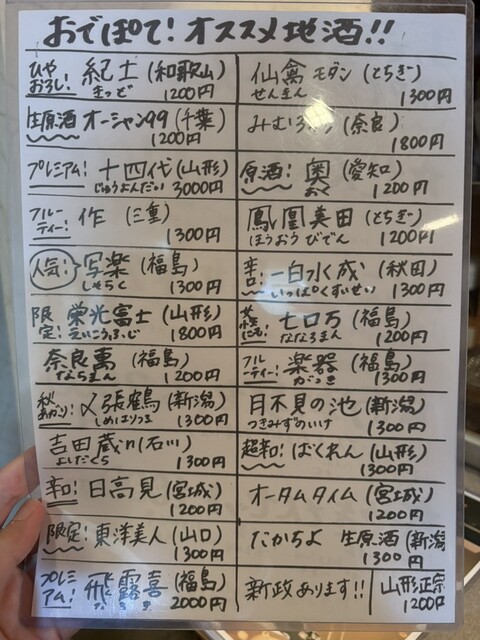 おでぽて！オススメ地酒!!
ひやおろし！ 紀土 (和歌山)
きっど 1200円
生原酒 オーシャン99 (千葉)
1200円
プレミアム！ 十四代 (山形)
じゅうよんだい 3000円
フルーティー！ 作 (三重)
1300円
人気！ 写楽 (福島)
しゃらく 1300円
限定！ 栄光富士 (山形)
えいこうふじ 1800円
奈良萬 (福島)
ならまん 1200円
秋あがり！ 〆張鶴 (新潟)
しめはりつる 1300円
吉田蔵u (石川)
よしだくら 1300円
辛口！ 日高見 (宮城)
1200円
限定！ 東洋美人 (山口)
1300円
プレミアム！ 飛露喜 (福島)
ひろき 2000円
仙禽 モダン (とちぎ)
せんきん 1300円
みむろ杉 (奈良)
1800円
原酒！ 奥 (愛知)
おく 1200円
鳳凰美田 (とちぎ)
ほうおうびでん 1200円
辛口！ 一白水成 (秋田)
いっぱくすいせい 1300円
七ロ万 (福島)
ななろまん 1200円
フルーティー！ 楽器 (福島)
がっき 1300円
月不見の池 (新潟)
つきみずのいけ 1300円
超辛口！ ばくれん (山形)
1300円
オータムタイム (宮城)
1200円
たかちよ 生原酒 (新潟
1300円
新政あります!!
山形正宗
1200円